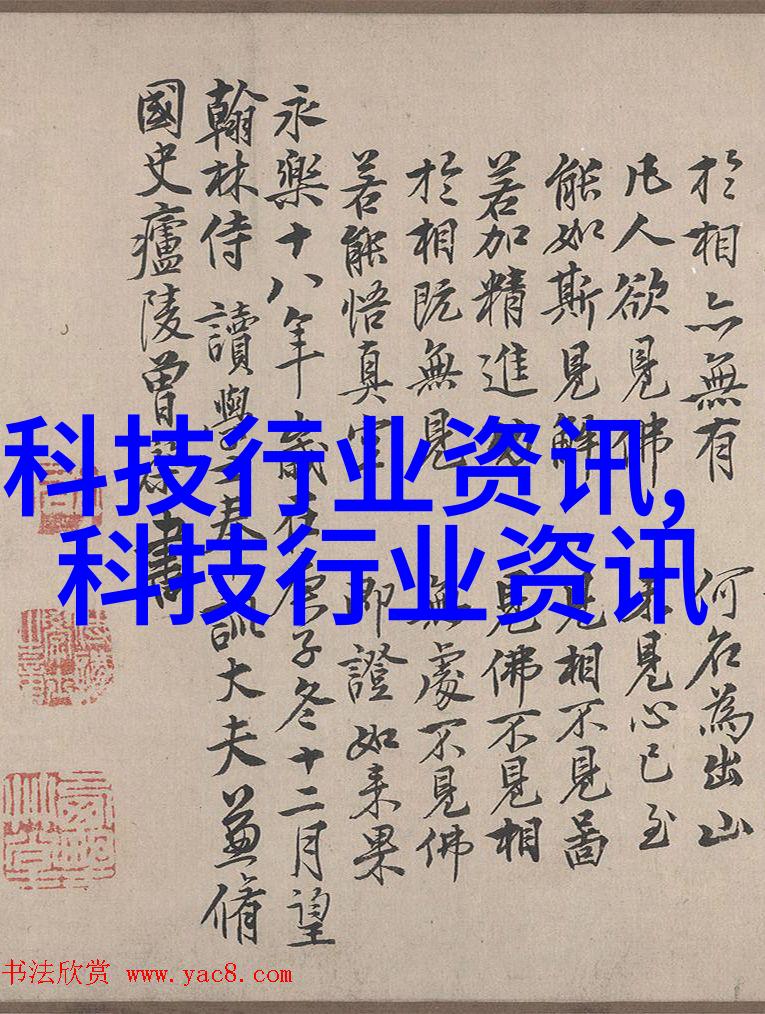 於相亦無有 何名為出山
凡人欲見佛 未見心已至
能如斯見解 見相不見啚
若加精進 見佛不見相
於相既無見 無處不見佛
若能悟真空 即證如来果
永樂十八年歲在庚子冬十二月望
翰林侍讀學士奉訓大夫兼脩
國史廬陵曾棨書
科技行业资讯,
科技行业资讯
书法欣赏 www.yac8.com